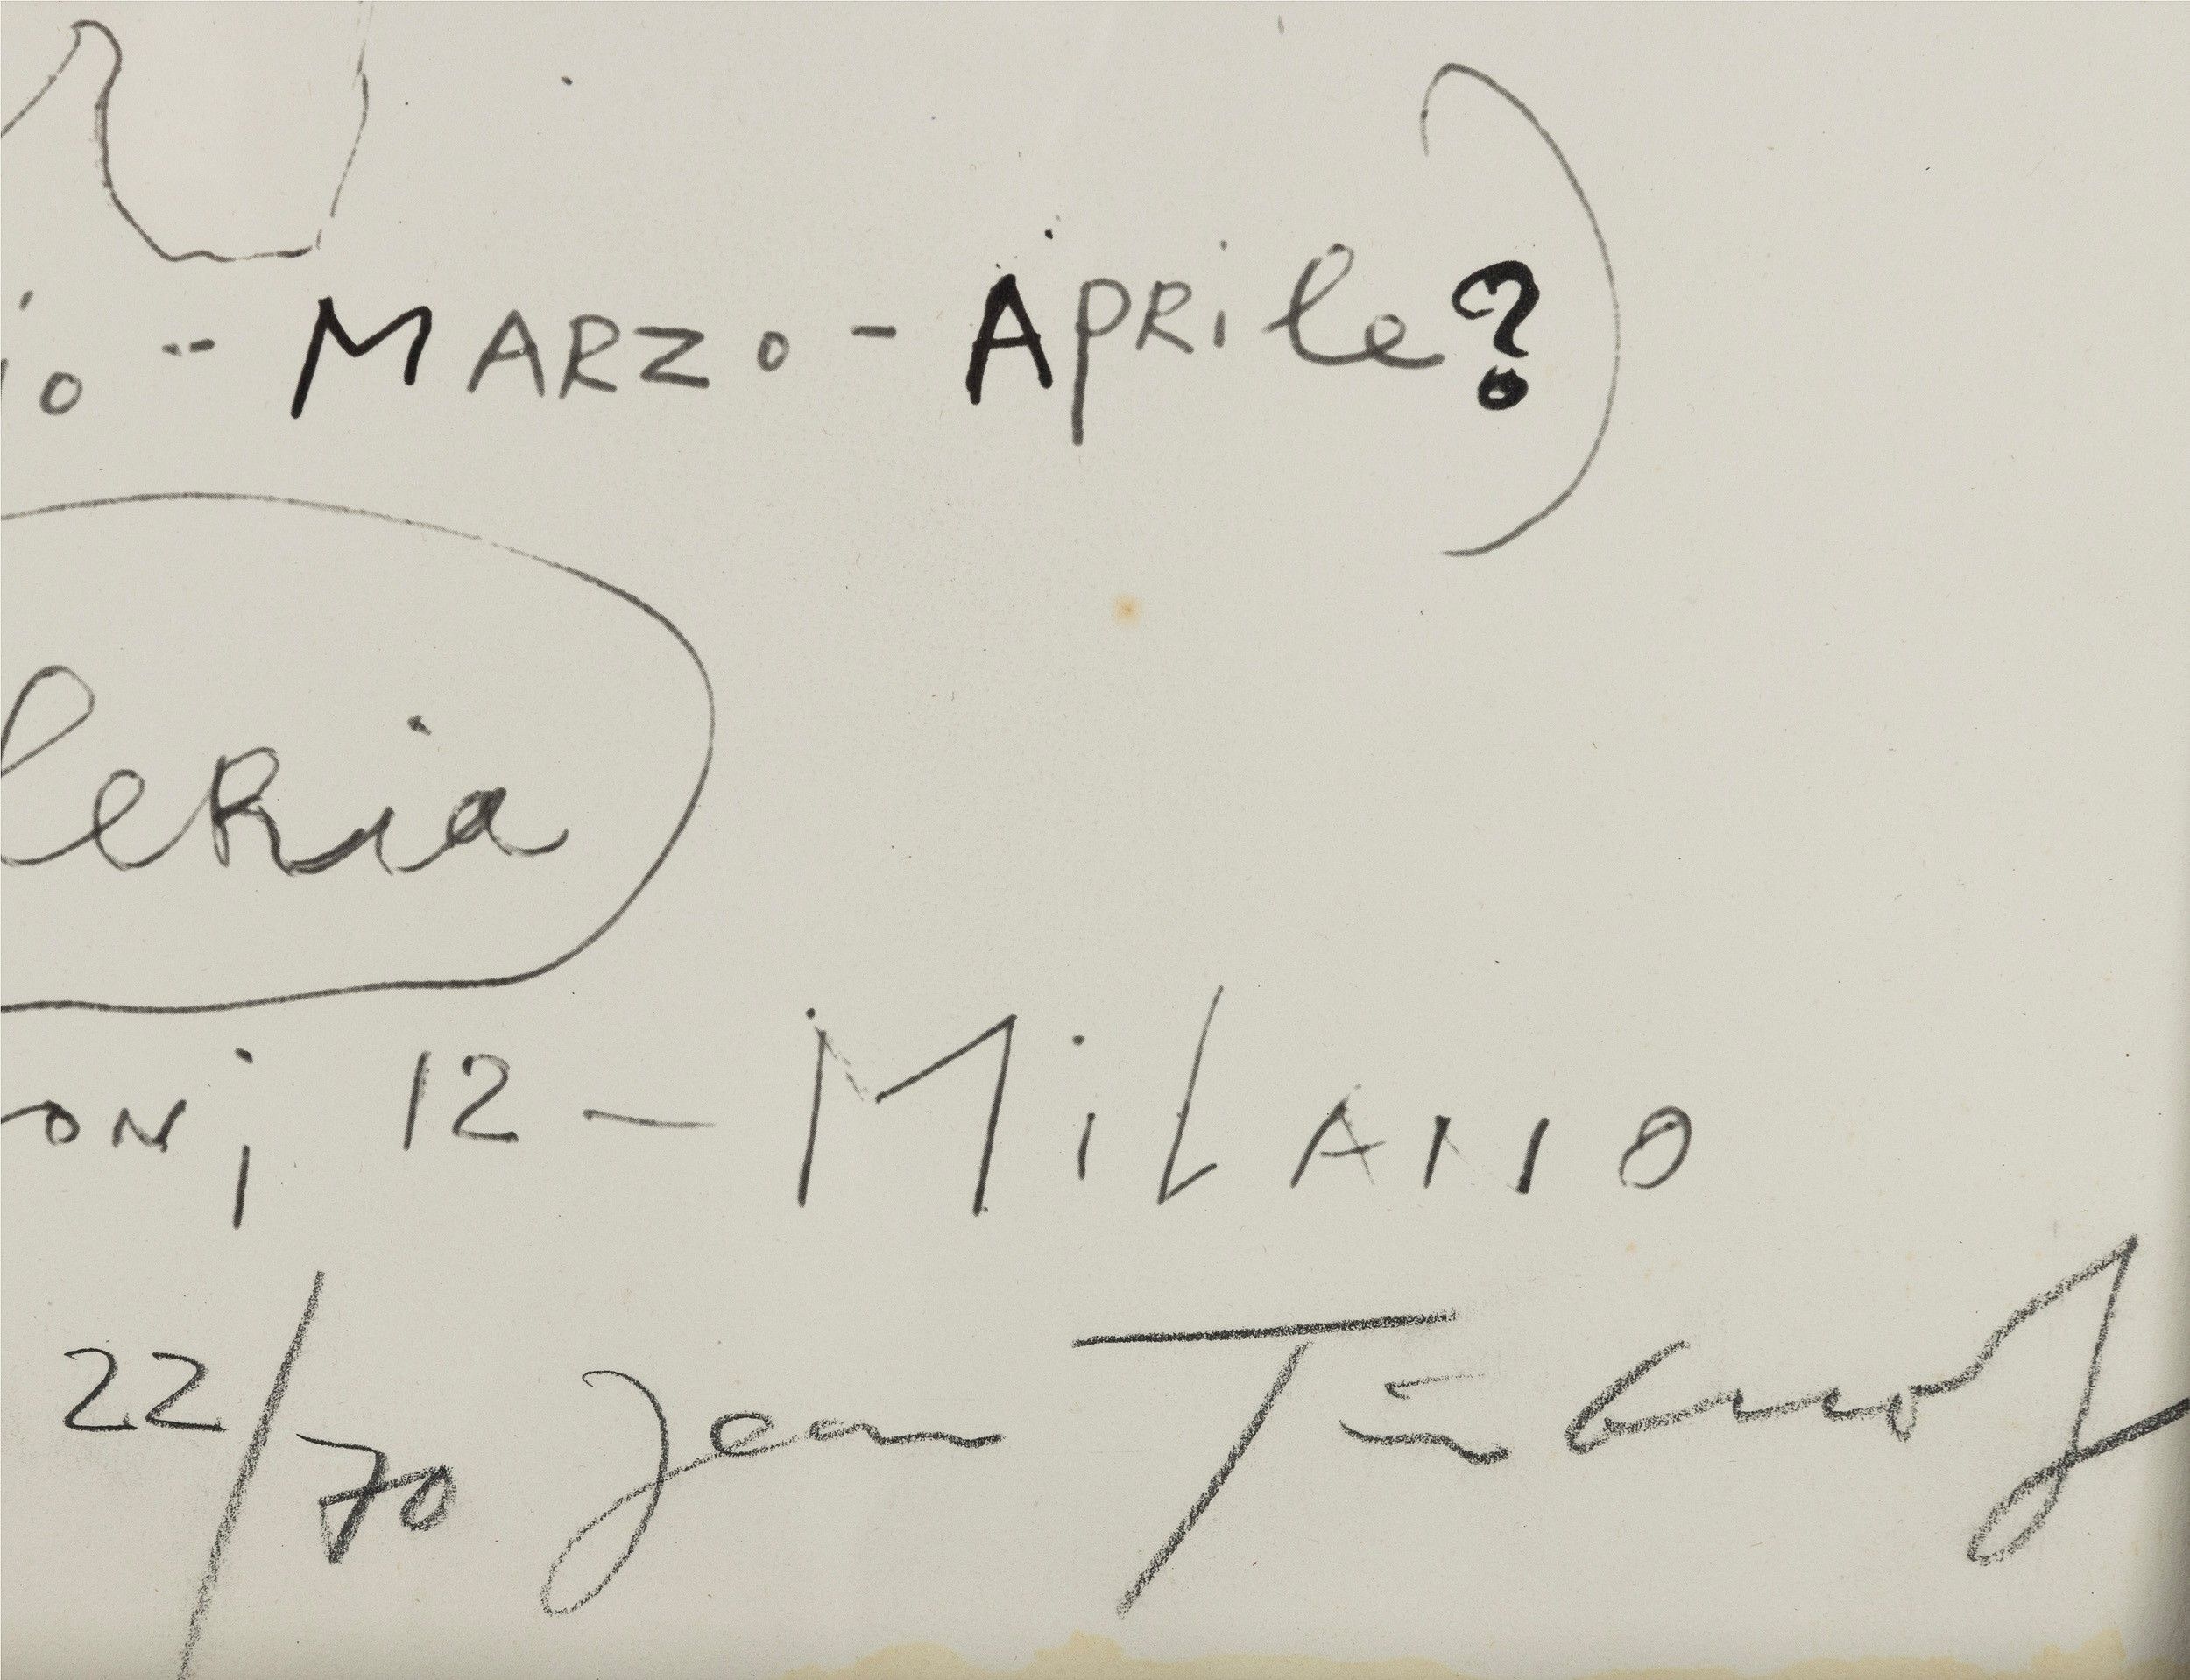 io - MARZo - Aprile?)
leria
oni, 12 — MiLANO
22/70 Jean Tinguely